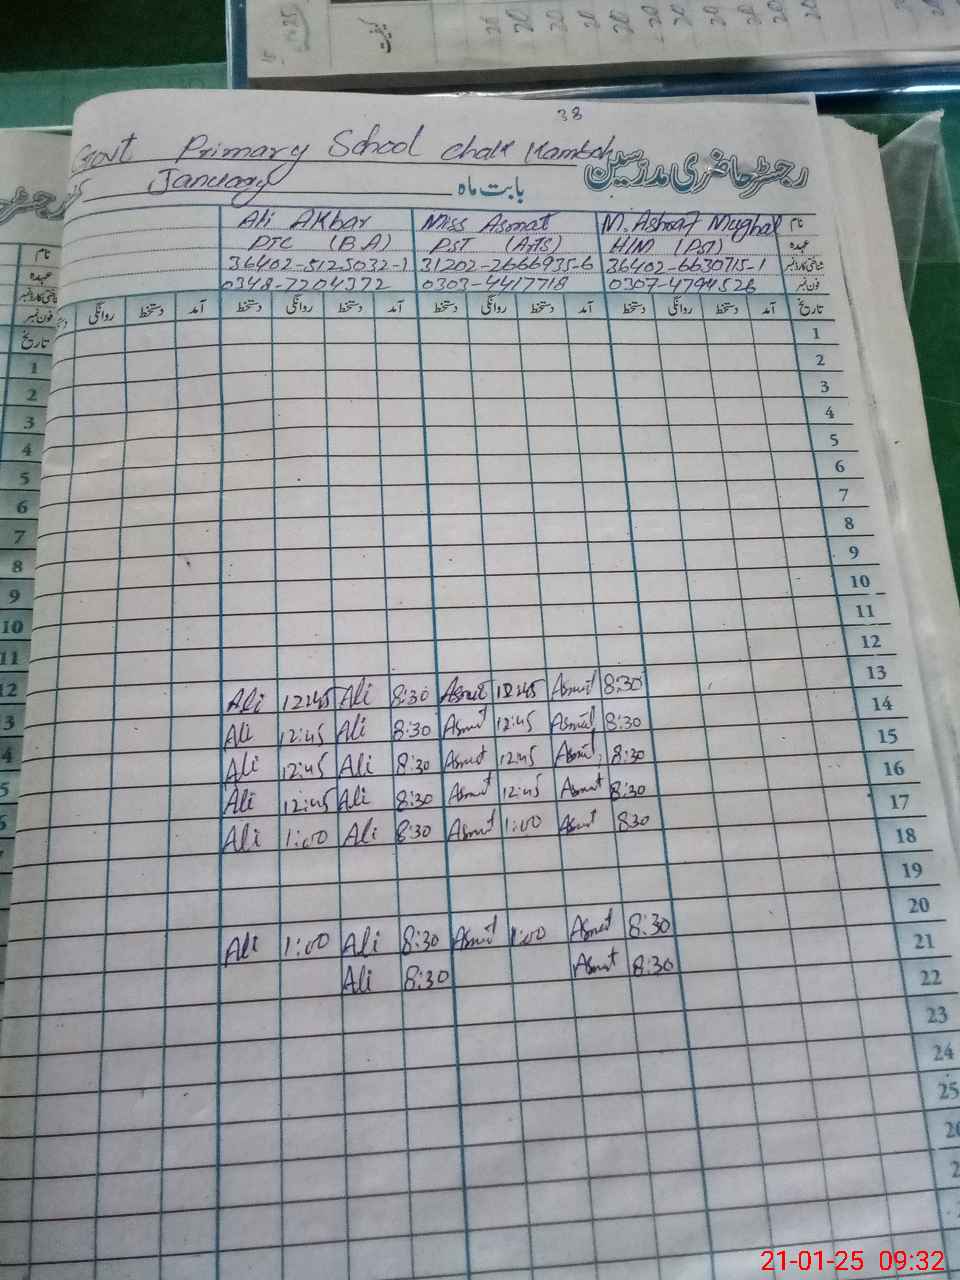 38
Govt Primary School Chak Kamboh رجسٹر حاضری مدرسین
January بابت ماہ
Ali Akbar Miss Asmat M. Ashraf Mughal نام
PTC (BA) PST (Arts) H/M (PST) عہدہ
36402-5125032-1 31202-2666935-6 36402-6630715-1 شناختی کارڈ نمبر
0348-7204372 0303-4417718 0307-4794526 فون نمبر
دستخط روانگی دستخط آمد دستخط روانگی دستخط آمد دستخط روانگی دستخط آمد دستخط روانگی دستخط آمد تاریخ
1
2
3
4
5
6
7
8
9
10
11
12
Ali 12:45 Ali 8:30 Asmat 12:45 Asmat 8:30 13
Ali 12:45 Ali 8:30 Asmat 12:45 Asmat 8:30 14
Ali 12:45 Ali 8:30 Asmat 12:45 Asmat 8:30 15
Ali 12:45 Ali 8:30 Asmat 12:45 Asmat 8:30 16
Ali 1:00 Ali 8:30 Asmat 1:00 Asmat 830 17
18
19
Ali 1:00 Ali 8:30 Asmat 1:00 Asmat 8:30 20
Ali 8:30 Asmat 8:30 21
22
23
24
25
نام
عہدہ
شناختی کارڈ نمبر
فون نمبر
تاریخ
1
2
3
4
5
6
7
8
9
10
11
12
21-01-25 09:32